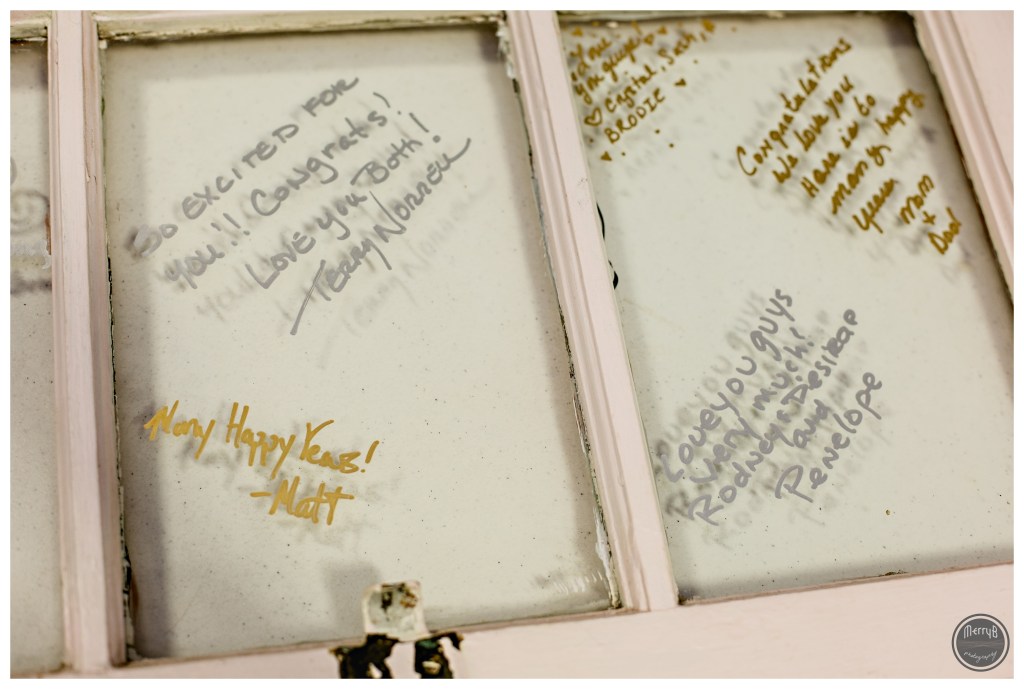 So EXCITED FOR
you!! Congrats!
Love you Both!
Terry Norrell
Many Happy Years!
-Matt
you guys!
♡ Crystal,
BRODIE
Congratulations
We love you
Here is to
many happy
years
Mom
+
Dad
Love you guys
very much!
Rodney & Desirae
and
Penelope
MerryB
photography